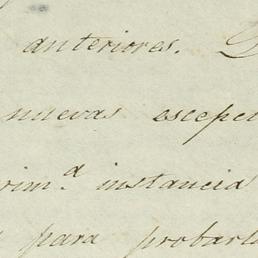 anteriores.
nuevas escepci
rim.ª instancia
para probarl